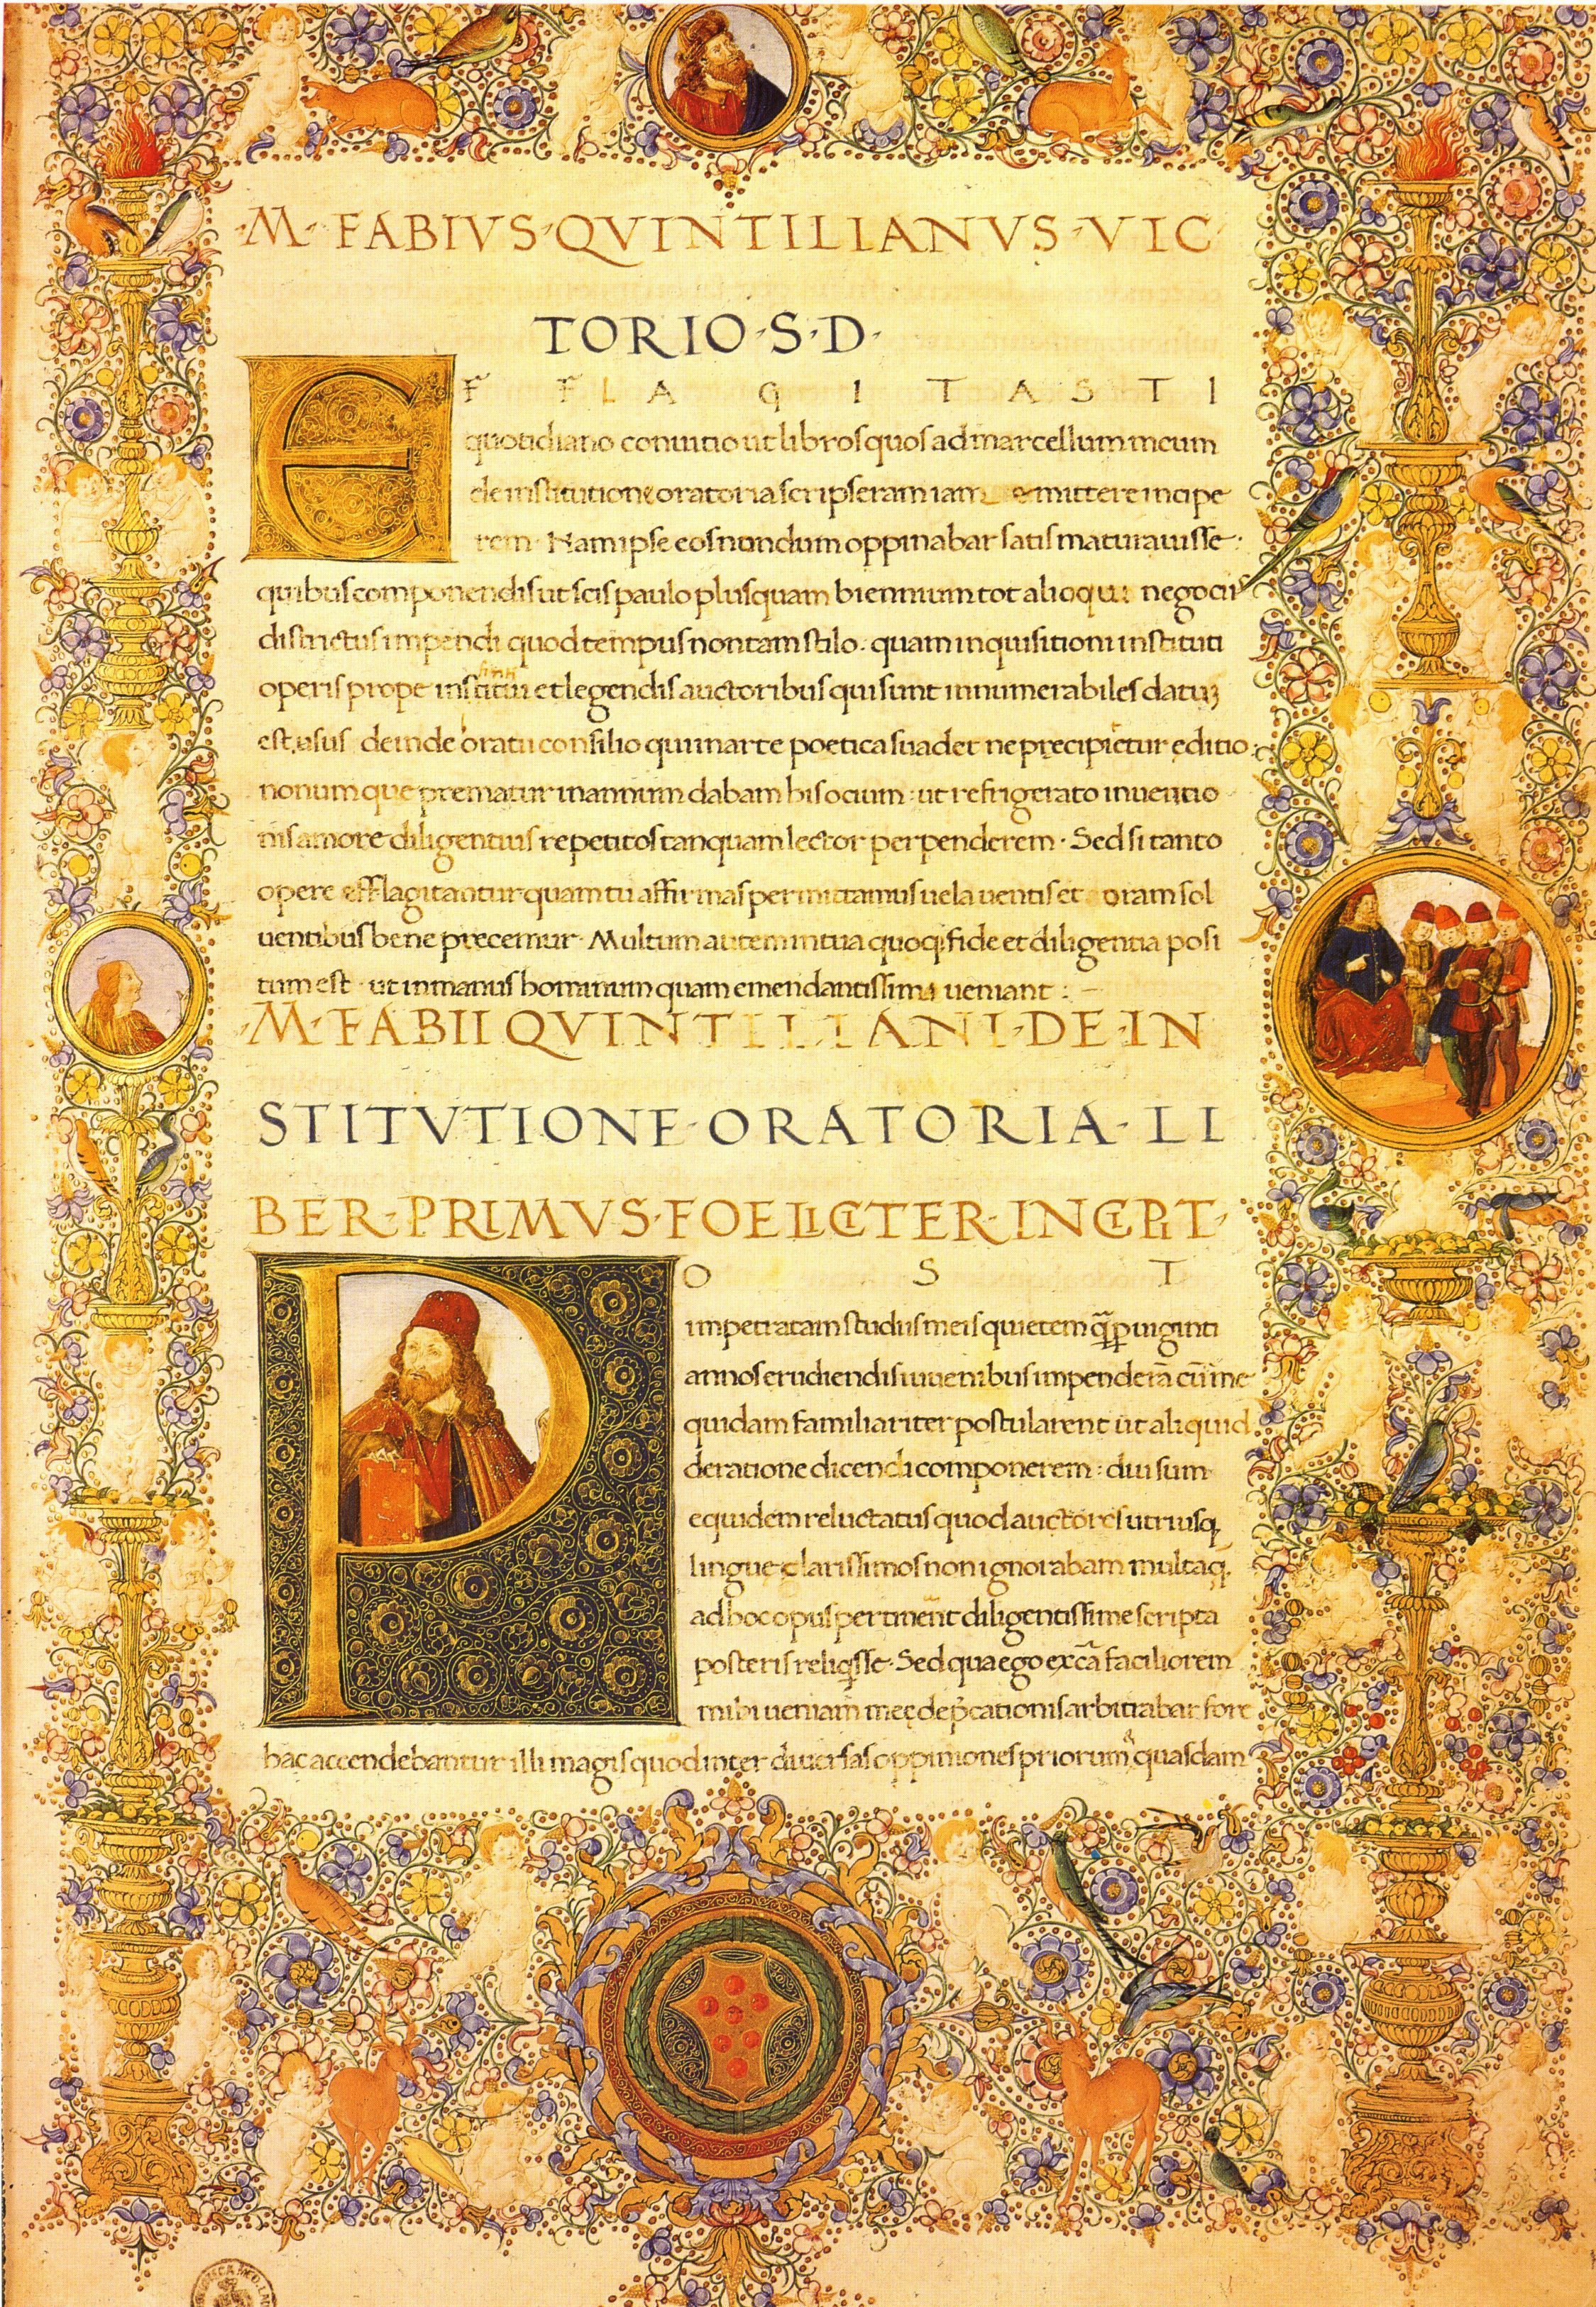 ·M·FABIVS·QVINTILIANVS·VIC
TORIO·S·D·
EFFLAGITASTI
quotidiano conuitio ut libros quos ad marcellum meum
de institutione oratoria scripseram iam emittere incipe
rem· Nam ipse eos nondum oppinabar satis maturauisse:
quibus componendis ut scis paulo plusquam biennium tot alioqui negociis
districtus impendi quod tempus non tam stilo· quam inquisitioni instituti
operis prope infiniti et legendis auctoribus qui sunt innumerabiles datuȝ
est usus deinde oratii consilio qui in arte poetica suadet ne precipietur editio
nonumque prematur in annum dabam his ocium: ut refrigerato inuentio
nis amore diligentius repetitos tanquam lector perpenderem· Sed si tanto
opere efflagitantur quam tu affirmas permittamus uela uentis et oram sol
uentibus bene precemur· Multum autem in tua quoqȝ fide et diligentia posi
tum est· ut in manus hominum quam emendantissimi ueniant:
·M·FABII QVINTILIANI·DE·IN
STITVTIONE·ORATORIA·LI
BER·PRIMVS·FOELICITER·INCIPIT·
POST
impetratam studiis meis quietem q̄ ꝑ uiginti
annos erudiendis iuuenibus impenderā cū me
quidam familiariter postularent ut aliquid
de ratione dicendi componerem: diu sum
equidem reluctatus quod auctores utriusqȝ
lingue clarissimos non ignorabam multaqȝ
ad hoc opus pertinent diligentissime scripta
posteris reliq̇sse· Sed qua ego ex cā faciliorem
mihi ueniam meę dep̄cationis arbitrabar fore
hac accendebantur illi magis quod inter diuersas oppiniones priorum quasdam